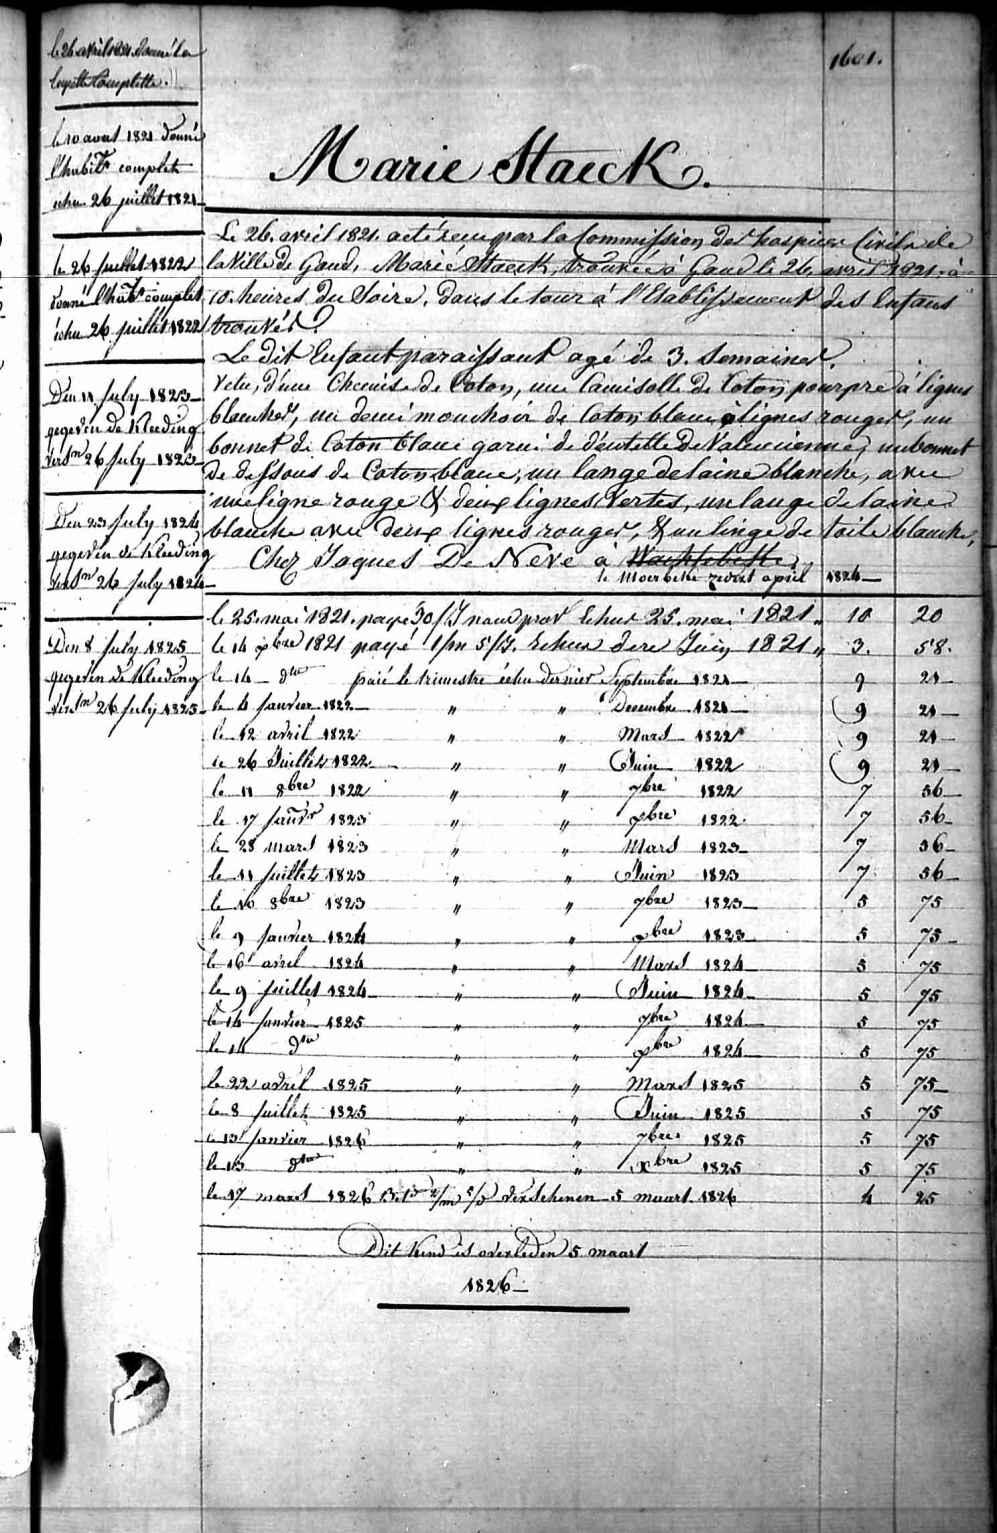 1601.
le 26 avril 1821. donné la
layette Complette.
le 10 aout 1821 donné
l'habit.t complet
échu 26 juillet 1821
le 26 juillet 1822
donné l'hab.t complet
échu 26 juillet 1822
Den 11 July 1823
gegeven de Kleeding
vers.n 26 July 1823
Den 23 July 1824
gegeven de Kleeding
vers.n 26 July 1824
Den 8 July 1825
gegeven de Kleeding
vers.n 26 July 1825
Marie Staeck.
Le 26. avril 1821. acté reçu par la Commission des hospices Civils de
la Ville de Gand, Marie Staeck, trouvée à Gand le 26 avril 1821. à
10. heures du Soire, dans le tour à l'Etablissement des Enfans
trouvés.
Le dit Enfant paraissant agé de 3. Semaines.
Vetu, d'une Chemise de Coton, une Camisolle de Coton pourpre à lignes
blanches, un demi mouchoir de Coton blanc à lignes rouges, un
bonnet de Coton blanc garni de dentelle De Valenciennes, un bonnet
de dessous de Coton blanc, un lange de laine blanche, avec
une ligne rouge & deux lignes Vertes, un lange de laine
blanche avec deux lignes rouges, & un linge de toile blanche,
Chez Jaques De Neve à
te Moerbeke zedert april 1824
le 25. mai 1821. payé 30/J nauprat Echus 25. mai 1821 „ 10 20
le 14 xbre 1821 payé 1/m 5/J. Echus dere Juin 1821 „ 3. 58.
le 14 dto paié le trimestre échu dernier Septembre 1821 9 21
le 4 janvier 1822 „ „ Decembre 1821 9 21
le 12 avril 1822 „ „ Mars 1822 9 21
le 26 Juillet 1822 „ „ Juin 1822 9 21
le 11 8bre 1822 „ „ 7bre 1822 7 56
le 17 janvr 1823 „ „ xbre 1822 7 56
le 28 mars 1823 „ „ Mars 1823 7 56
le 11 juillet 1823 „ „ Juin 1823 7 56
le 10 8bre 1823 „ „ 7bre 1823 5 75
le 9 janvier 1824 „ „ xbre 1823 5 75
le 16 avril 1824 „ „ Mars 1824 5 75
le 9 juillet 1824 „ „ Juin 1824 5 75
le 14 janvier 1825 „ „ 7bre 1824 5 75
le 14 dto „ „ xbre 1824 5 75
le 22 avril 1825 „ „ Mars 1825 5 75
le 8 juillet 1825 „ „ Juin 1825 5 75
le 13 janvier 1826 „ „ 7bre 1825 5 75
le 13 dto „ „ xbre 1825 5 75
le 17 mars 1826 2/m 5/d verschenen 5 maart 1826 4 25
Dit Kind is overleden 5 maart
1826